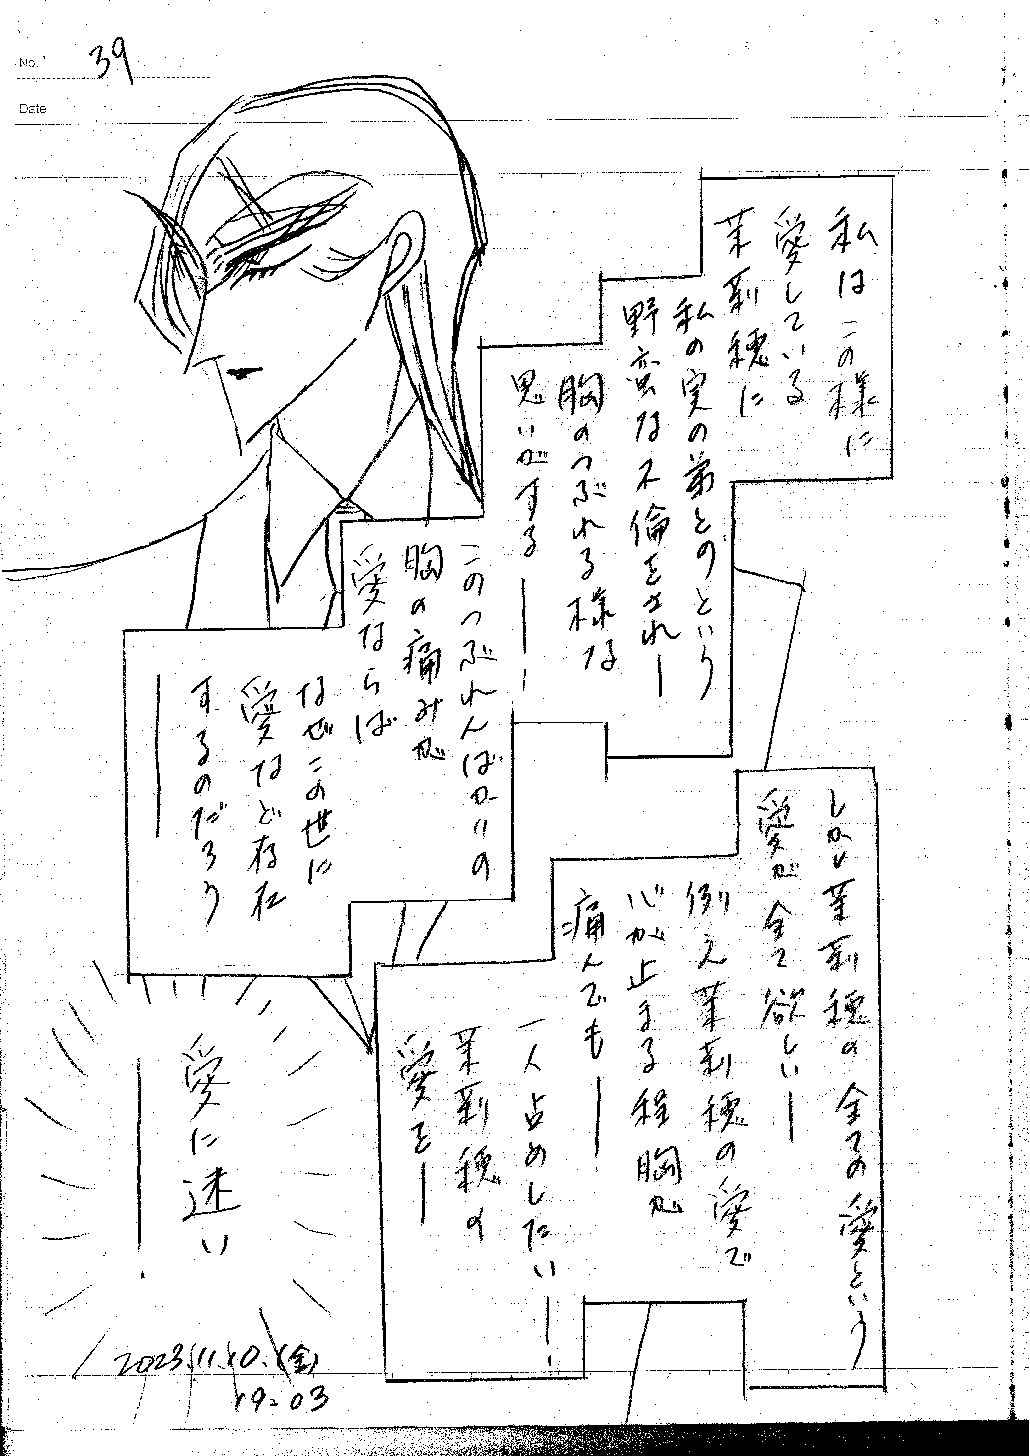 No. 39
Date
私はこの様に
愛している
茉莉穂に
私の実の弟とのという
野蛮な不倫をされ―
胸のつぶれる様な
思いがする――
このつぶれんばかりの
胸の痛みが
愛ならば
なぜこの世に
愛など存在
するのだろう
――
しかし茉莉穂の全ての愛という
愛が全て欲しい―
例え茉莉穂の愛で
心が止まる程胸が
痛んでも――
一人占めしたい――
茉莉穂の
愛を――
愛に迷い
――
2023.11.10.(金)
19:03